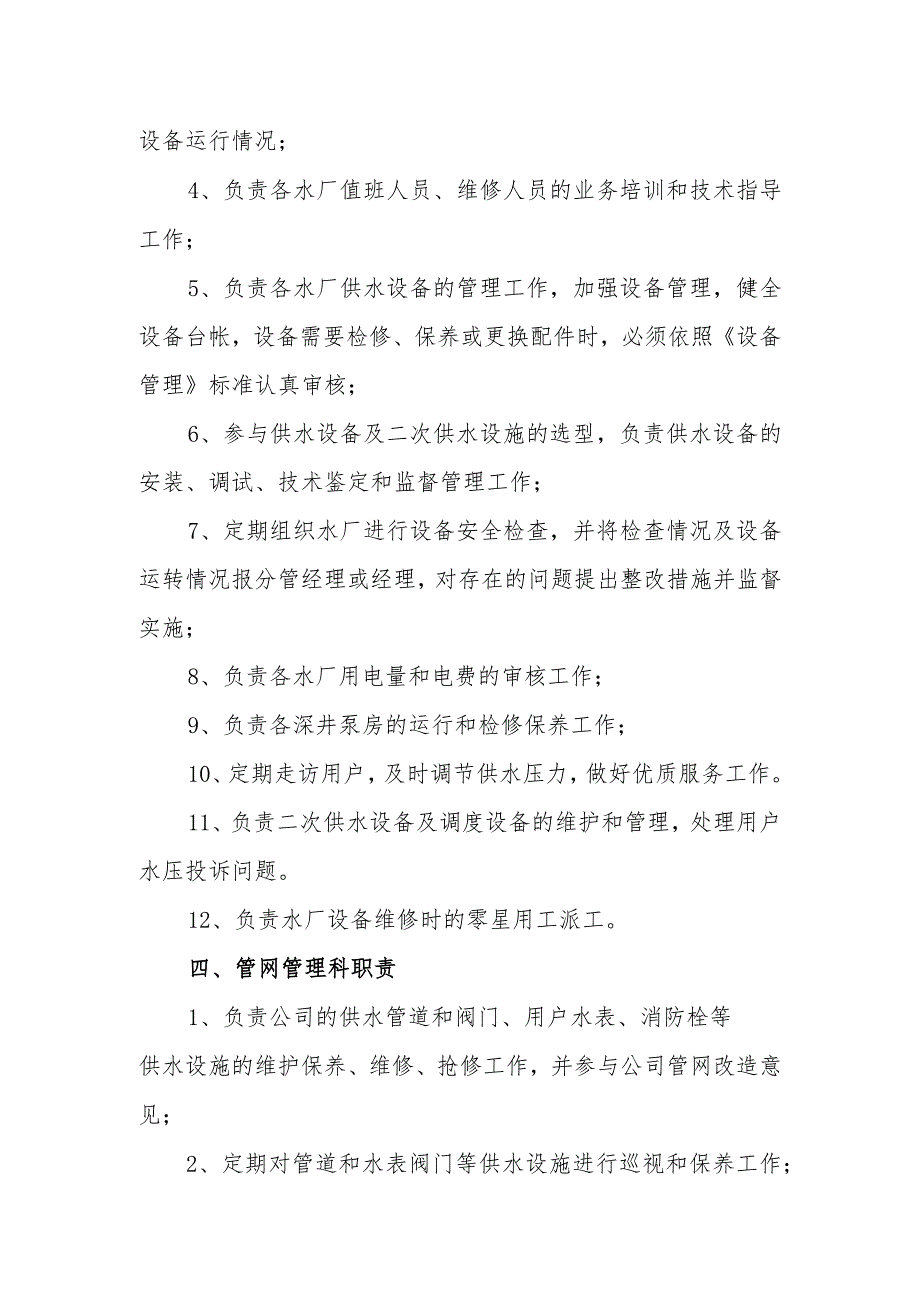 设备运行情况；
4、负责各水厂值班人员、维修人员的业务培训和技术指导
工作；
5、负责各水厂供水设备的管理工作，加强设备管理，健全
设备台帐，设备需要检修、保养或更换配件时，必须依照《设备
管理》标准认真审核；
6、参与供水设备及二次供水设施的选型，负责供水设备的
安装、调试、技术鉴定和监督管理工作；
7、定期组织水厂进行设备安全检查，并将检查情况及设备
运转情况报分管经理或经理，对存在的问题提出整改措施并监督
实施；
8、负责各水厂用电量和电费的审核工作；
9、负责各深井泵房的运行和检修保养工作；
10、定期走访用户，及时调节供水压力，做好优质服务工作。
11、负责二次供水设备及调度设备的维护和管理，处理用户
水压投诉问题。
12、负责水厂设备维修时的零星用工派工。
四、管网管理科职责
1、负责公司的供水管道和阀门、用户水表、消防栓等
供水设施的维护保养、维修、抢修工作，并参与公司管网改造意
见；
2、定期对管道和水表阀门等供水设施进行巡视和保养工作；